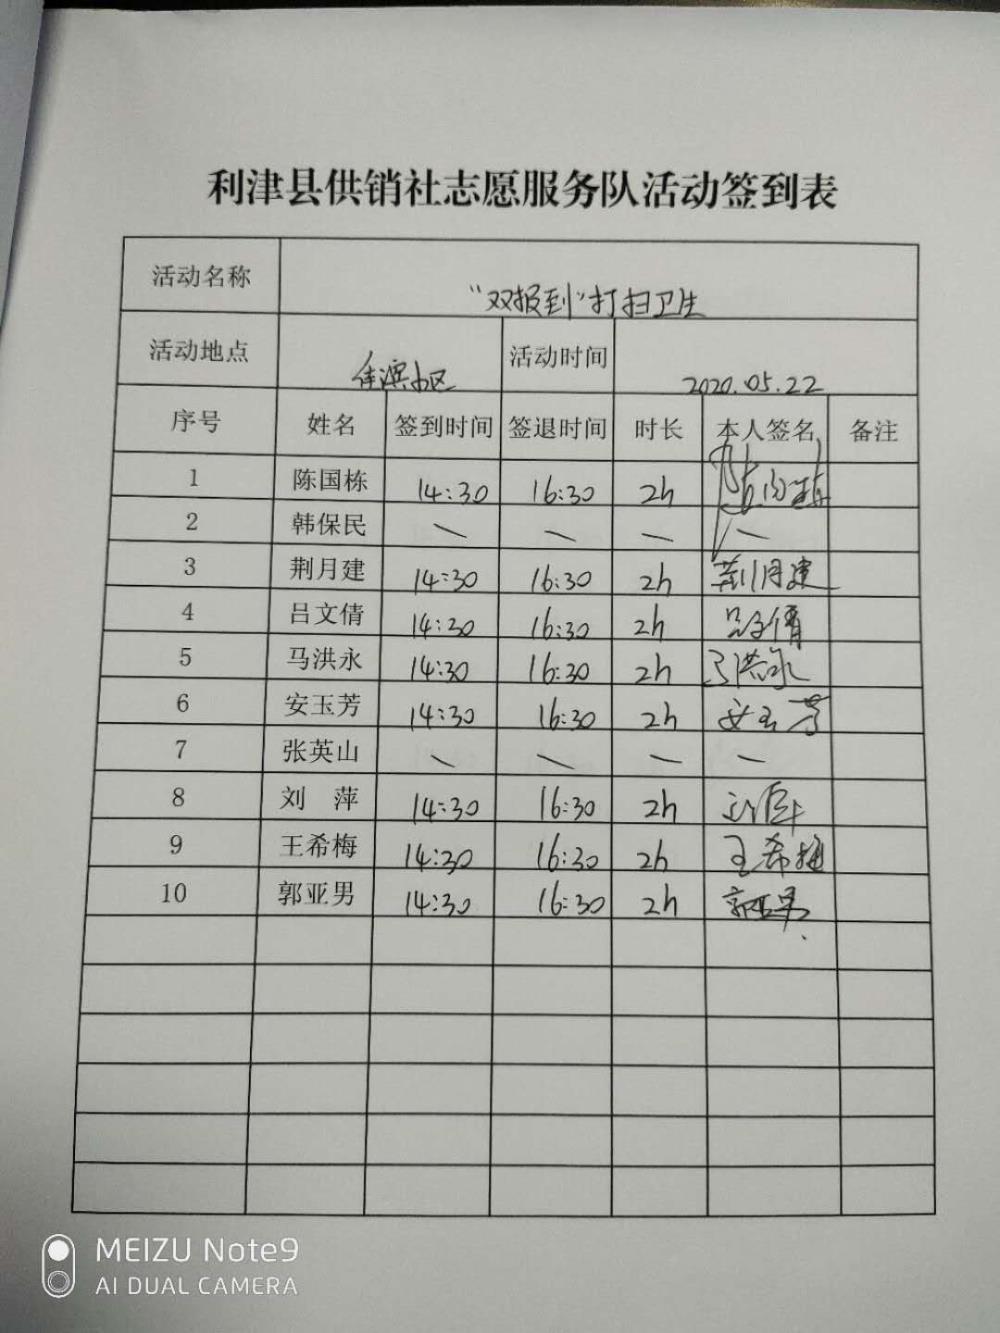 利津县供销社志愿服务队活动签到表
活动名称 “双报到”打扫卫生
活动地点 佳滨小区 活动时间 2020.05.22
序号 姓名 签到时间 签退时间 时长 本人签名 备注
1 陈国栋 14:30 16:30 2h 陈国栋
2 韩保民 — — — —
3 荆月建 14:30 16:30 2h 荆月建
4 吕文倩 14:30 16:30 2h 吕文倩
5 马洪永 14:30 16:30 2h 马洪永
6 安玉芳 14:30 16:30 2h 安玉芳
7 张英山 — — — —
8 刘 萍 14:30 16:30 2h 刘萍
9 王希梅 14:30 16:30 2h 王希梅
10 郭亚男 14:30 16:30 2h 郭亚男
MEIZU Note9
AI DUAL CAMERA